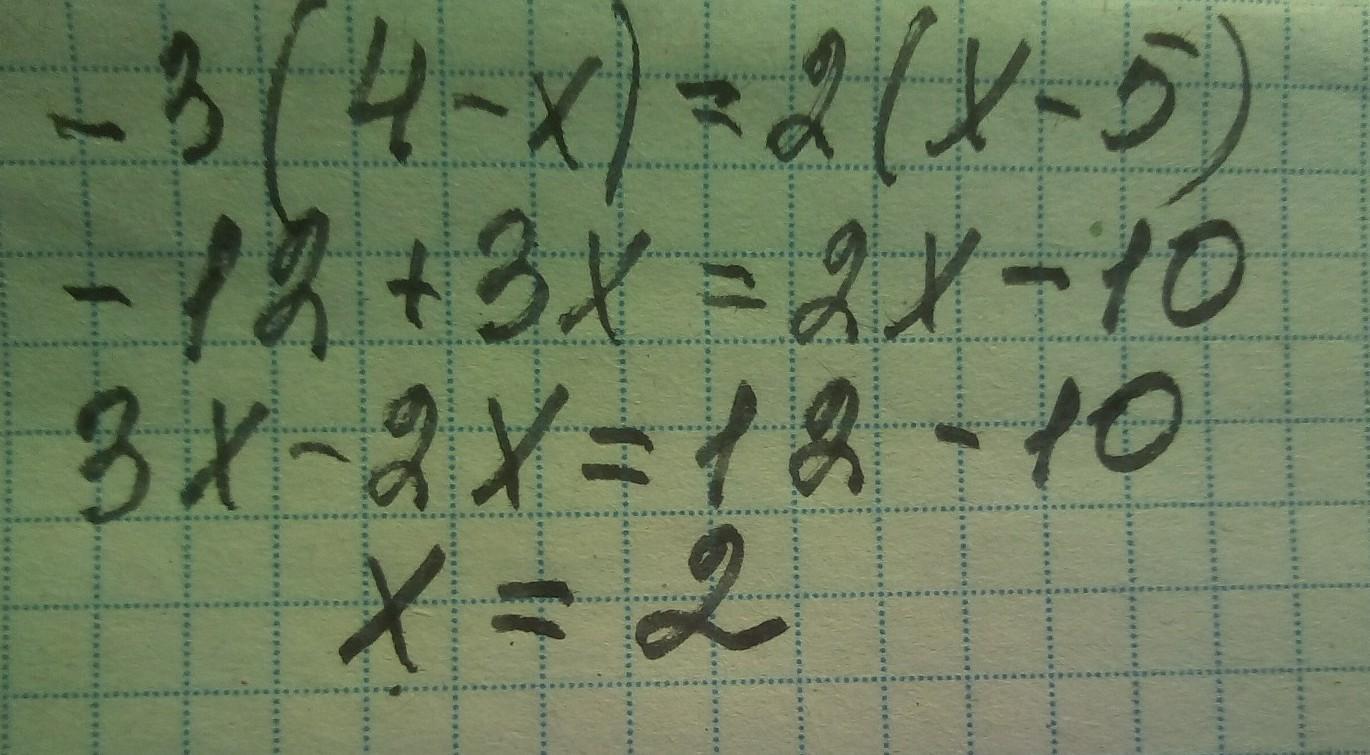 -3(4-x)=2(x-5)
-12+3x=2x-10
3x-2x=12-10
x=2